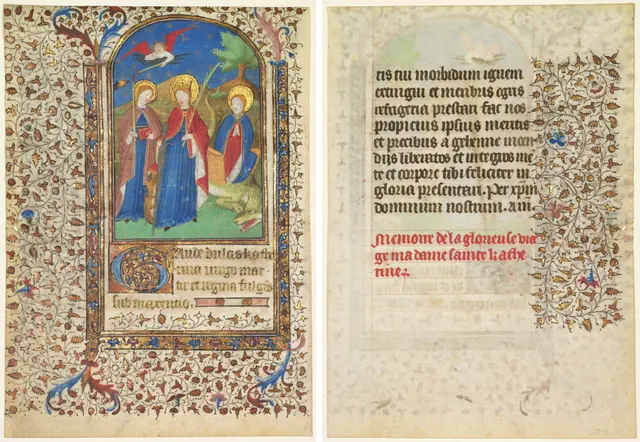 Gaude dulcis kathe
rina virgo mar
tir et regina fulges
sub maxentio.
tis tui morbidum ignem
extingui et membris egris
refrigeria prestari fac nos
propicius ipsius meritis
et precibus a gehenne incen
dijs liberatos et integros me
te et corpore tibi feliciter in
gloria presentari. Per xpm
dominum nostrum. am.
Memoire de la glorieuse vier
ge ma dame sainte kathe
rine.